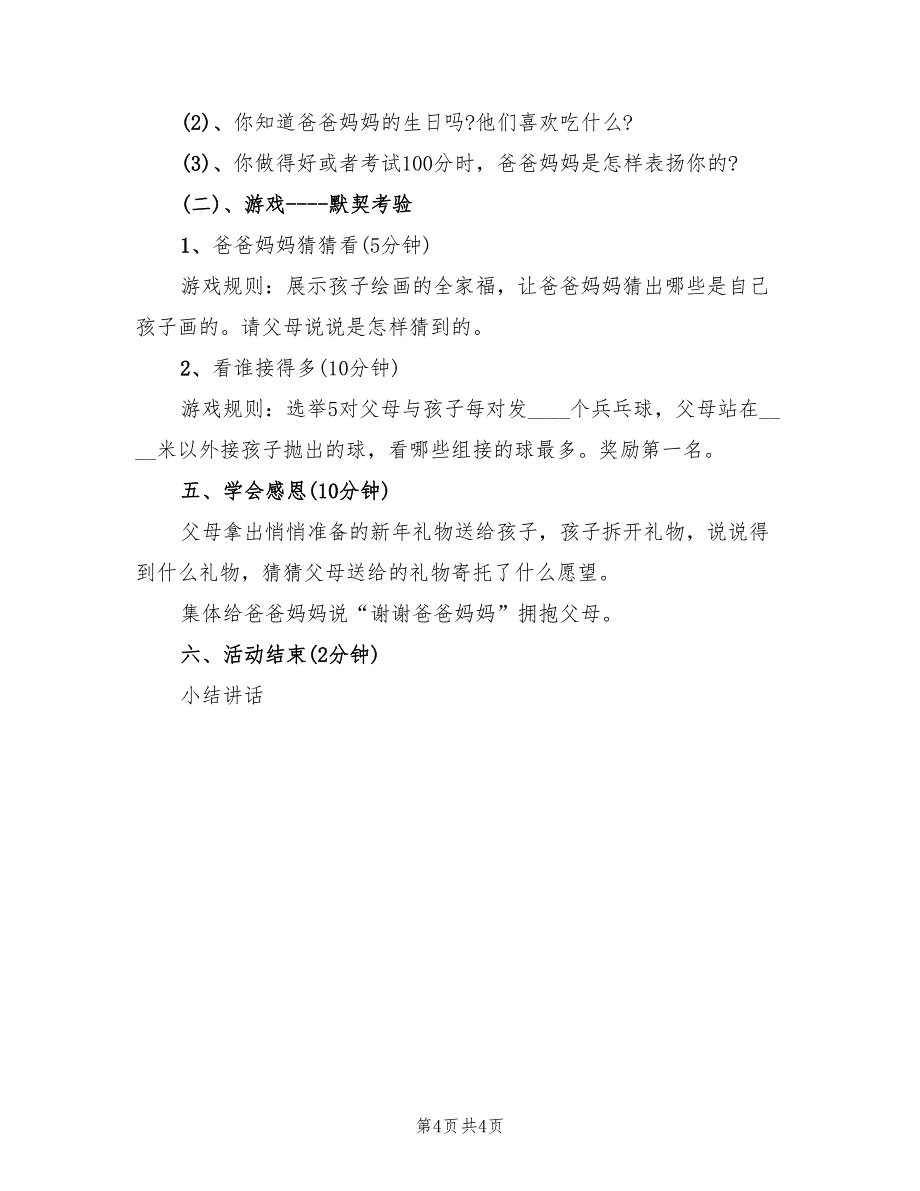 (2)、你知道爸爸妈妈的生日吗?他们喜欢吃什么?
(3)、你做得好或者考试100分时，爸爸妈妈是怎样表扬你的?
(二)、游戏----默契考验
1、爸爸妈妈猜猜看(5分钟)
游戏规则：展示孩子绘画的全家福，让爸爸妈妈猜出哪些是自己
孩子画的。请父母说说是怎样猜到的。
2、看谁接得多(10分钟)
游戏规则：选举5对父母与孩子每对发____个兵乓球，父母站在__
__米以外接孩子抛出的球，看哪些组接的球最多。奖励第一名。
五、学会感恩(10分钟)
父母拿出悄悄准备的新年礼物送给孩子，孩子拆开礼物，说说得
到什么礼物，猜猜父母送给的礼物寄托了什么愿望。
集体给爸爸妈妈说“谢谢爸爸妈妈”拥抱父母。
六、活动结束(2分钟)
小结讲话
第4页 共4页